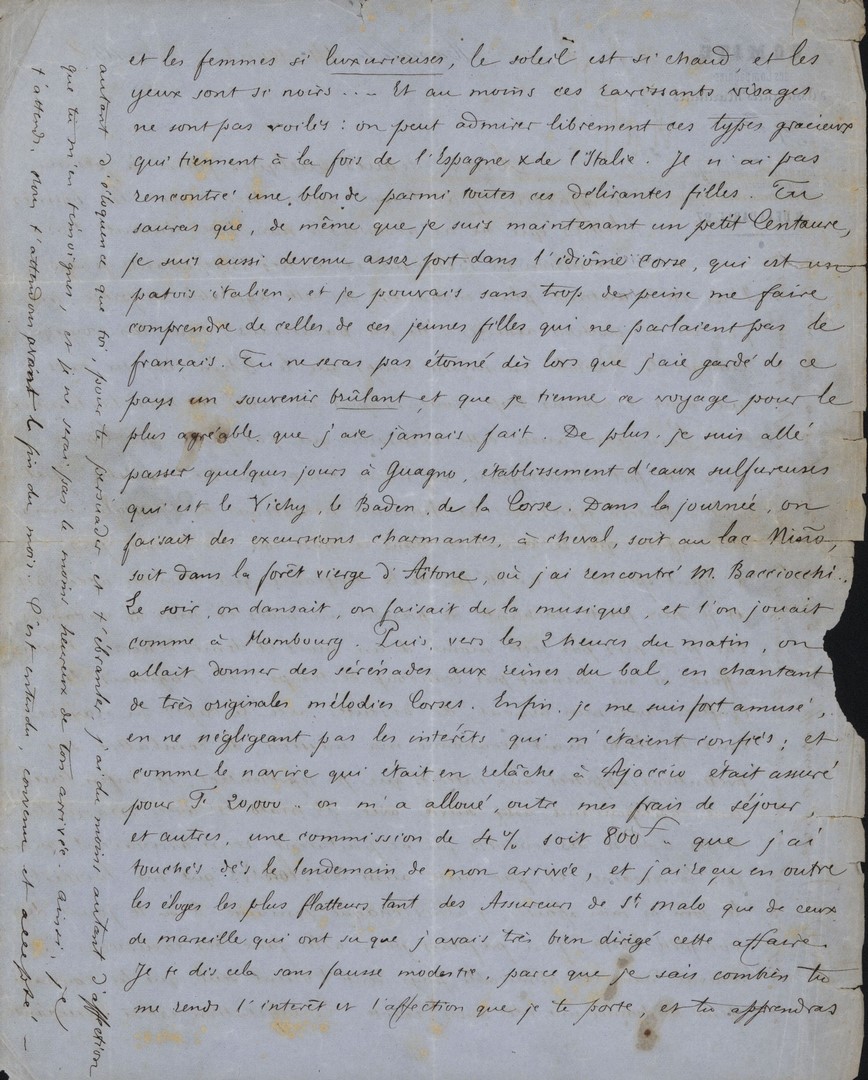 et les femmes si luxurieuses, le soleil est si chaud et les
yeux sont si noirs .... Et au moins ces ravissants visages
ne sont pas voilés : on peut admirer librement ces types gracieux
qui tiennent à la fois de l'Espagne & de l'Italie. Je n'ai pas
rencontré une blonde parmi toutes ces délirantes filles. Tu
sauras que, de même que je suis maintenant un petit Centaure,
je suis aussi devenu assez fort dans l'idiôme Corse, qui est un
patois italien, et je pouvais sans trop de peine me faire
comprendre de celles de ces jeunes filles qui ne parlaient pas le
français. Tu ne seras pas étonné dès lors que j'aie gardé de ce
pays un souvenir brûlant et que je tienne ce voyage pour le
plus agréable que j'aie jamais fait. De plus je suis allé
passer quelques jours à Guagno, établissement d'eaux sulfureuses
qui est le Vichy, le Baden, de la Corse. Dans la journée, on
faisait des excursions charmantes, à cheval, soit au lac Niño,
soit dans la forêt vierge d'Aïtone, où j'ai rencontré M. Bacciocchi.
Le soir, on dansait, on faisait de la musique, et l'on jouait
comme à Hombourg. Puis, vers les 2 heures du matin, on
allait donner des sérénades aux reines du bal, en chantant
de très originales mélodies Corses. Enfin, je me suis fort amusé,
en ne négligeant pas les intérêts qui m'étaient confiés ; et
comme le navire qui était en relâche à Ajaccio était assuré
pour F. 20,000 .. on m'a alloué, outre mes frais de séjour,
et autres, une commission de 4% soit 800f .. que j'ai
touchés dès le lendemain de mon arrivée, et j'ai reçu en outre
les éloges les plus flatteurs tant des Assureurs de St malo que de ceux
de marseille qui ont su que j'avais très bien dirigé cette affaire.
Je te dis cela sans fausse modestie, parce que je sais combien tu
me rends l'intérêt et l'affection que je te porte, et tu apprendras
autant d'éloquence que toi, pour te persuader et t'ébranler, j'ai du moins autant d'affection
que tu m'en témoignes, et je ne serai pas le moins heureux de ton arrivée. Ainsi, je
t'attends, nous t'attendons avant la fin du mois. C'est entendu, convenu et accepté ! —